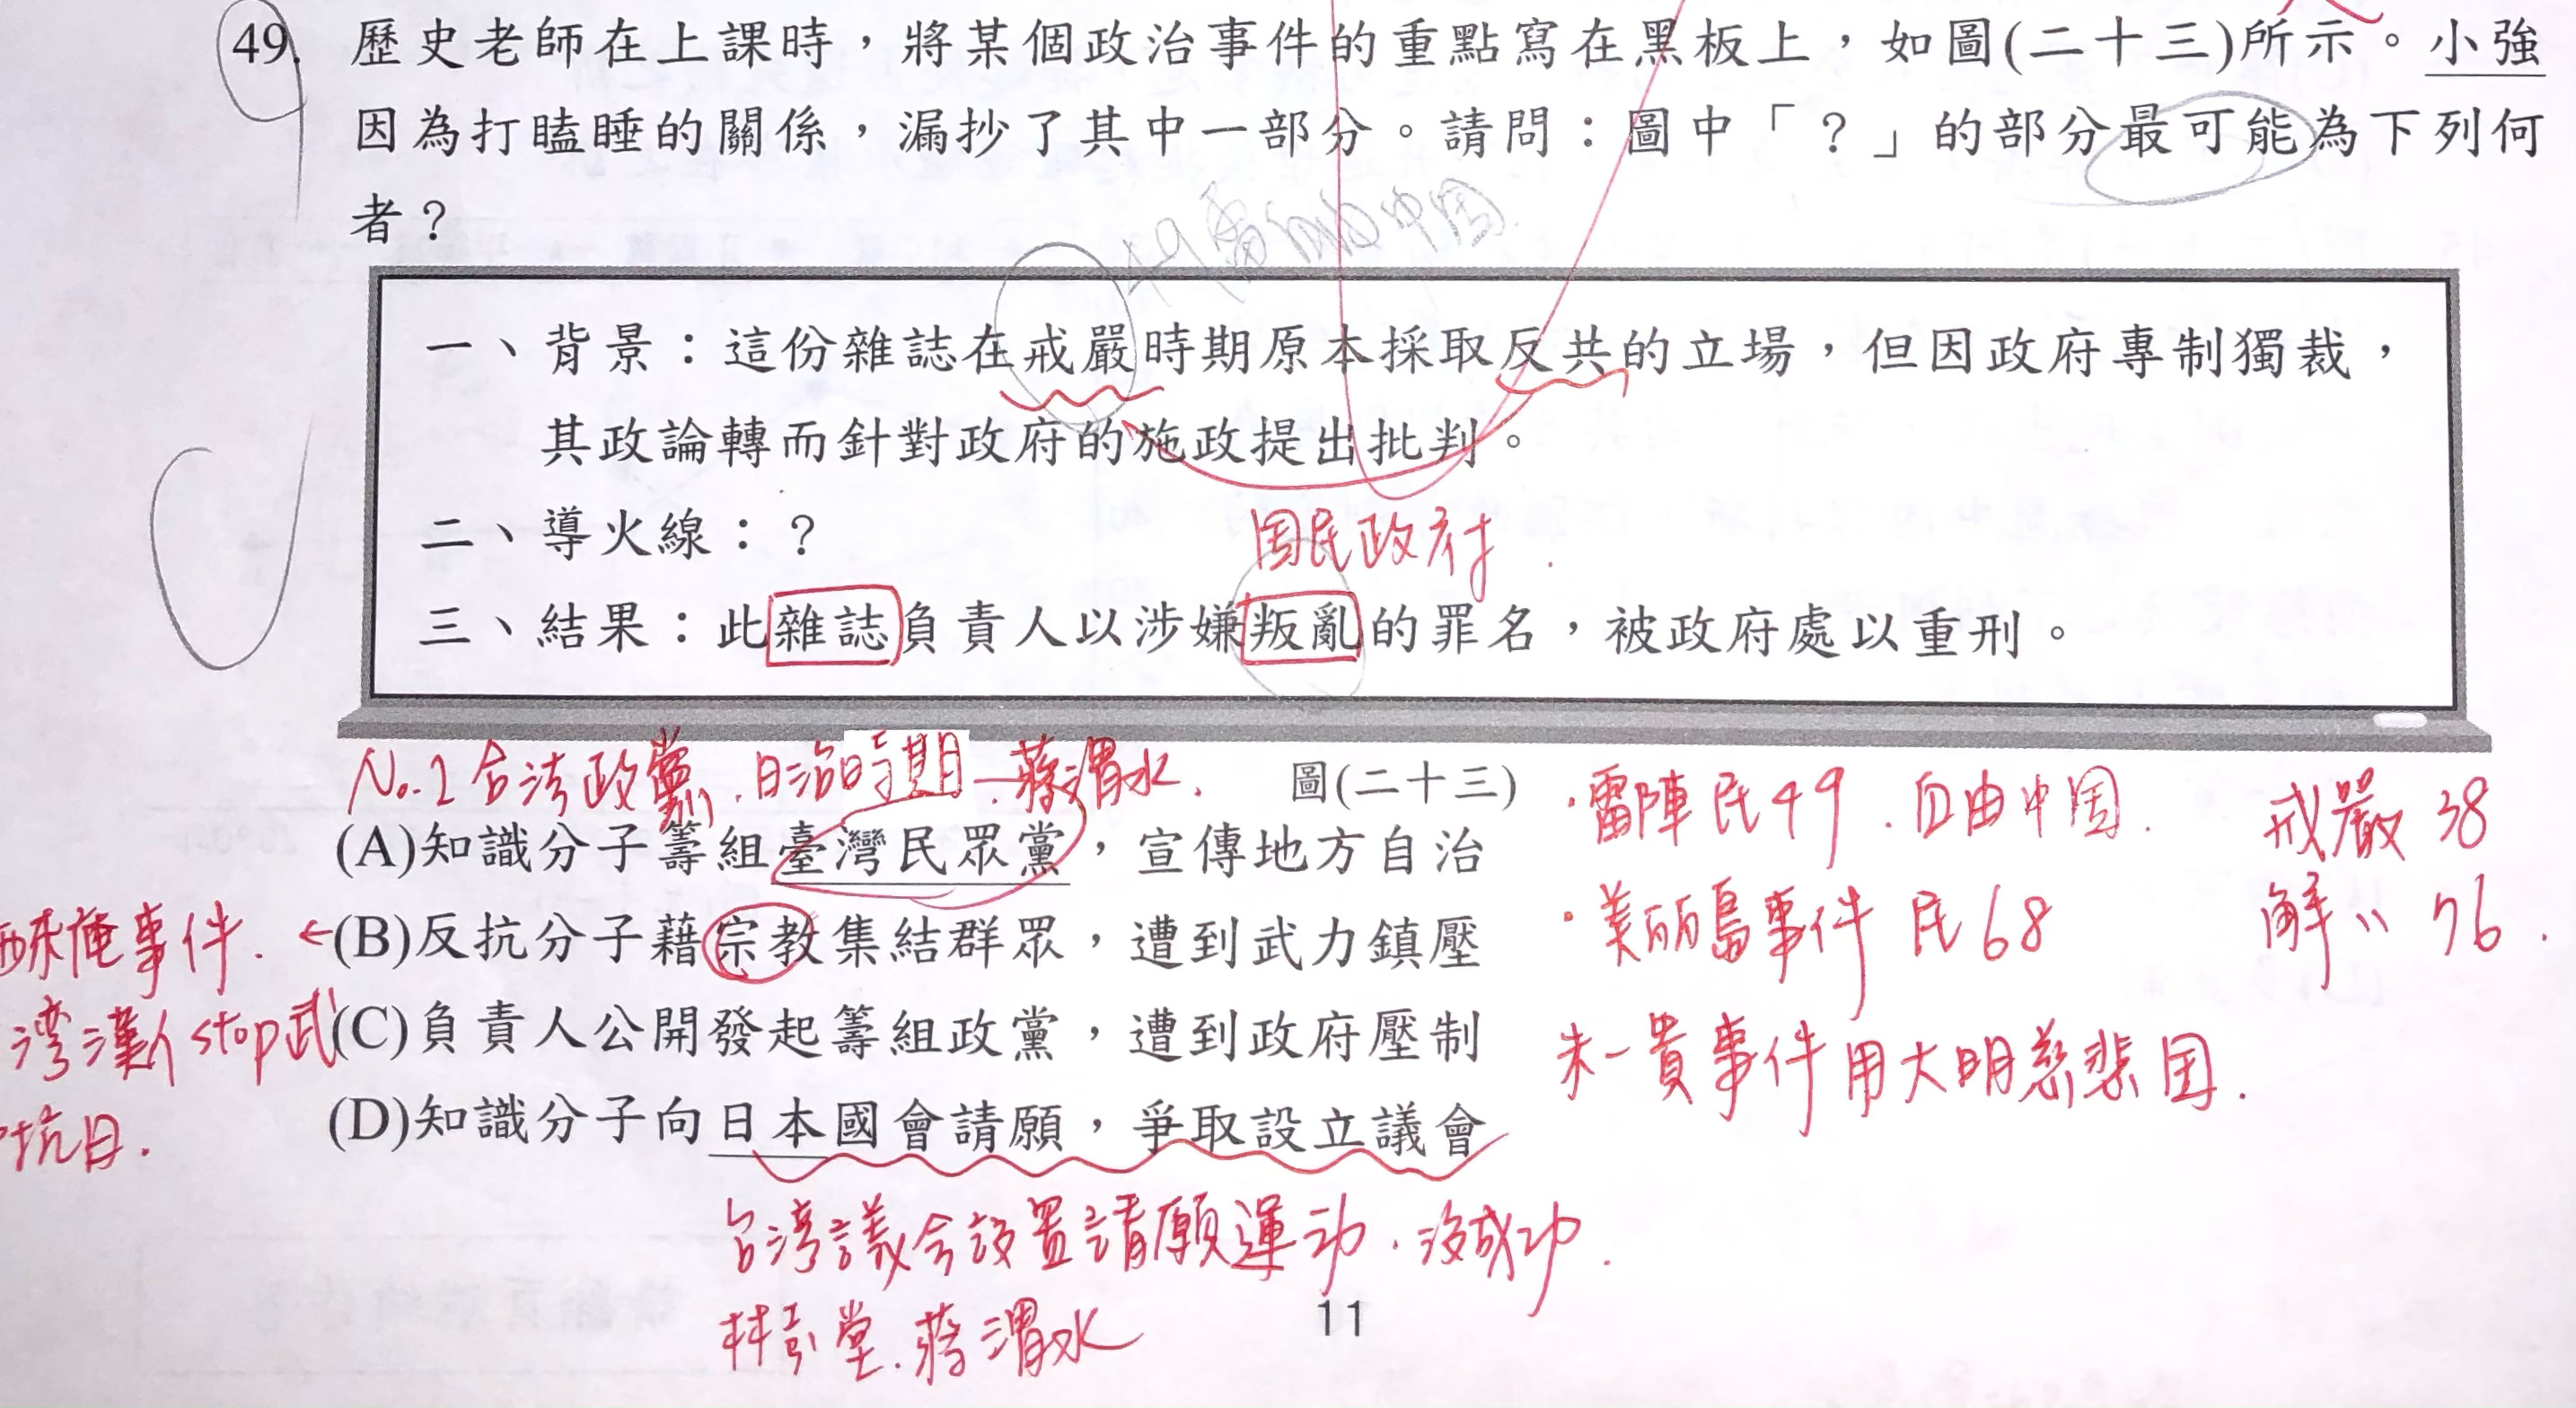 49. 歷史老師在上課時，將某個政治事件的重點寫在黑板上，如圖(二十三)所示。小強
因為打瞌睡的關係，漏抄了其中一部分。請問：圖中「？」的部分最可能為下列何
者？
49雷 自由中国
一、背景：這份雜誌在戒嚴時期原本採取反共的立場，但因政府專制獨裁，
其政論轉而針對政府的施政提出批判。
二、導火線：？
国民政府.
三、結果：此雜誌負責人以涉嫌叛亂的罪名，被政府處以重刑。
圖(二十三)
No.1合法政黨.日治時期.蔣渭水.
(A)知識分子籌組臺灣民眾黨，宣傳地方自治
(B)反抗分子藉宗教集結群眾，遭到武力鎮壓
(C)負責人公開發起籌組政黨，遭到政府壓制
(D)知識分子向日本國會請願，爭取設立議會
·雷陣民49.自由中国.
·美丽島事件 民68
朱一貴事件用大明慈悲国.
戒嚴 38
解〃 76.
西來庵事件. ←
湾漢人stop武
抗日.
台湾議会設置請願運动.没成功.
林献堂.蔣渭水
11